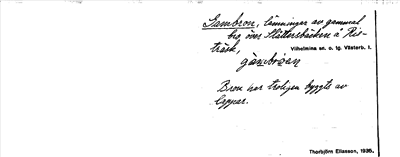 Gambron, lämningar av gammal
bro över Slåttersbäcken å Ris-
träsk, Vilhelmina sn. o. tg. Västerb. l.
Bron har troligen byggts av
lappar.
Thorbjörn Eliasson, 1936.